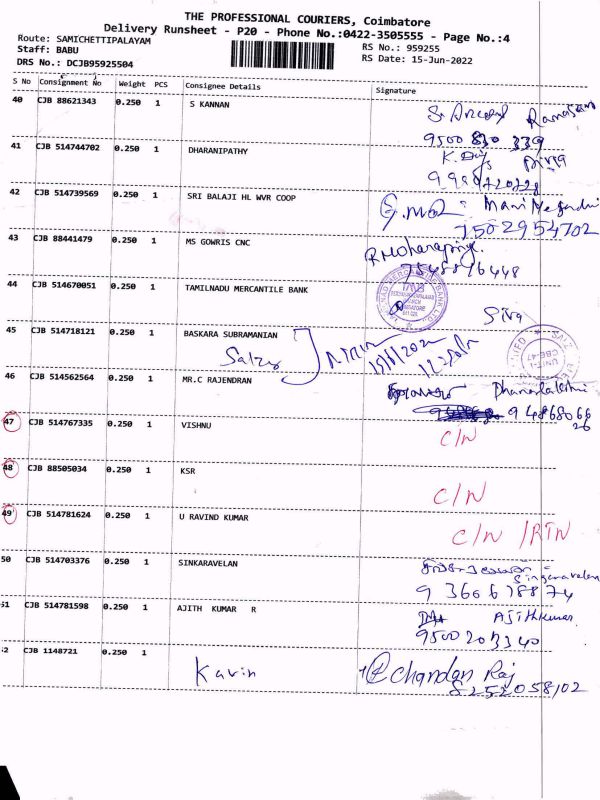 THE PROFESSIONAL COURIERS, Coimbatore
Delivery Runsheet - P20 - Phone No.:0422-3505555 - Page No.:4
Route: SAMICHETTIPALAYAM
Staff: BABU
DRS No.: DCJB95925504
RS No.: 959255
RS Date: 15-Jun-2022
S No Consignment No Weight PCS Consignee Details Signature
40 CJB 88621343 0.250 1 S KANNAN
9500 830 339
41 CJB 514744702 0.250 1 DHARANIPATHY
42 CJB 514739569 0.250 1 SRI BALAJI HL WVR COOP
7502954702
43 CJB 88441479 0.250 1 MS GOWRIS CNC
7548816448
44 CJB 514670051 0.250 1 TAMILNADU MERCANTILE BANK
Siva
45 CJB 514718121 0.250 1 BASKARA SUBRAMANIAN
Salzer
46 CJB 514562564 0.250 1 MR.C RAJENDRAN
Dhanalakshmi
47 CJB 514767335 0.250 1 VISHNU
C/N
48 CJB 88505034 0.250 1 KSR
C/N
49 CJB 514781624 0.250 1 U RAVIND KUMAR
C/N /RTN
50 CJB 514703376 0.250 1 SINKARAVELAN
Singaravelan
9360678874
51 CJB 514781598 0.250 1 AJITH KUMAR R
Ajithkumar
9500203340
52 CJB 1148721 0.250 1
Kavin
Chandan Raj
8252058102